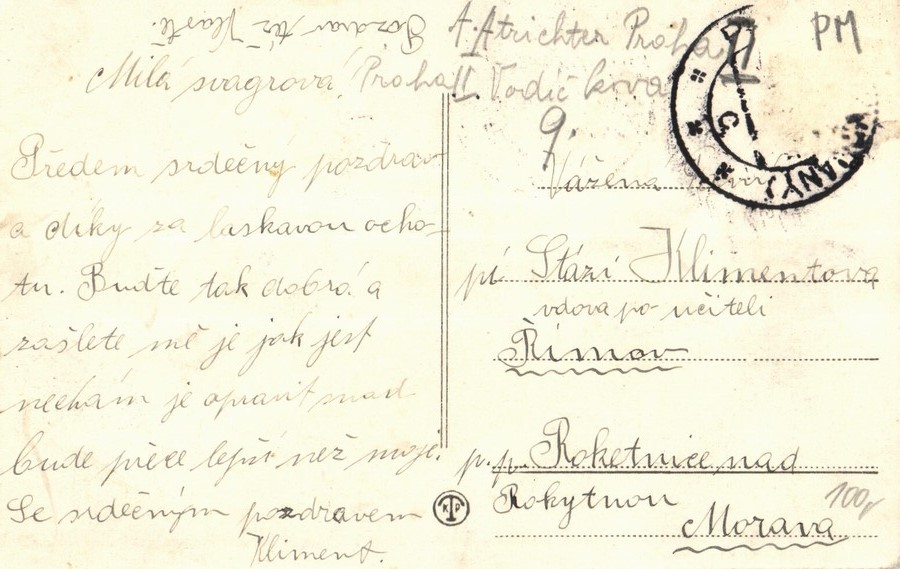 Pozdrav též Vlastě.
Milá švagrová!
Předem srdečný pozdrav
a díky za laskavou ocho-
tu. Buďte tak dobrá a
zašlete mě je jak jest
nechám je opravit snad
bude přece lepší než moje.
Se srdečným pozdravem
Kliment.
A. Atrichter Praha
Praha II. Vodičkova
9.
PM
C
Vážená
pí Stázi Klimentova
vdova po učiteli
Římov
p. p. Roketnice nad
Rokytnou
Morava
100,-
K P